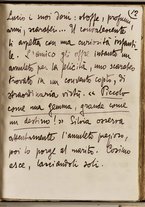 12
Lucio i suoi doni: stoffe, profumi,
armi, scarabei... Il convalescente
li aspetta con una curiosità
le. L'amico gli offre intanto un
amuleto per la felicità, uno scarabeo
trovato in un convento copto, di
straordinaria virtù. « Piccolo
come una gemma, grande come
un destino! » Silvia osserva
attentamente l'amuleto
poi lo porge al marito. Cosimo
esce, lasciandoli soli.